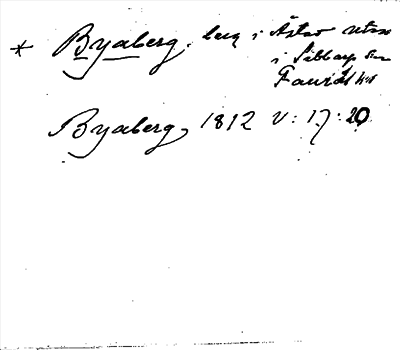 * Byaberg. läg i Åstao utm
i Sibbarp sn
Faurås hd
Byaberg, 1812 V: 17: 20